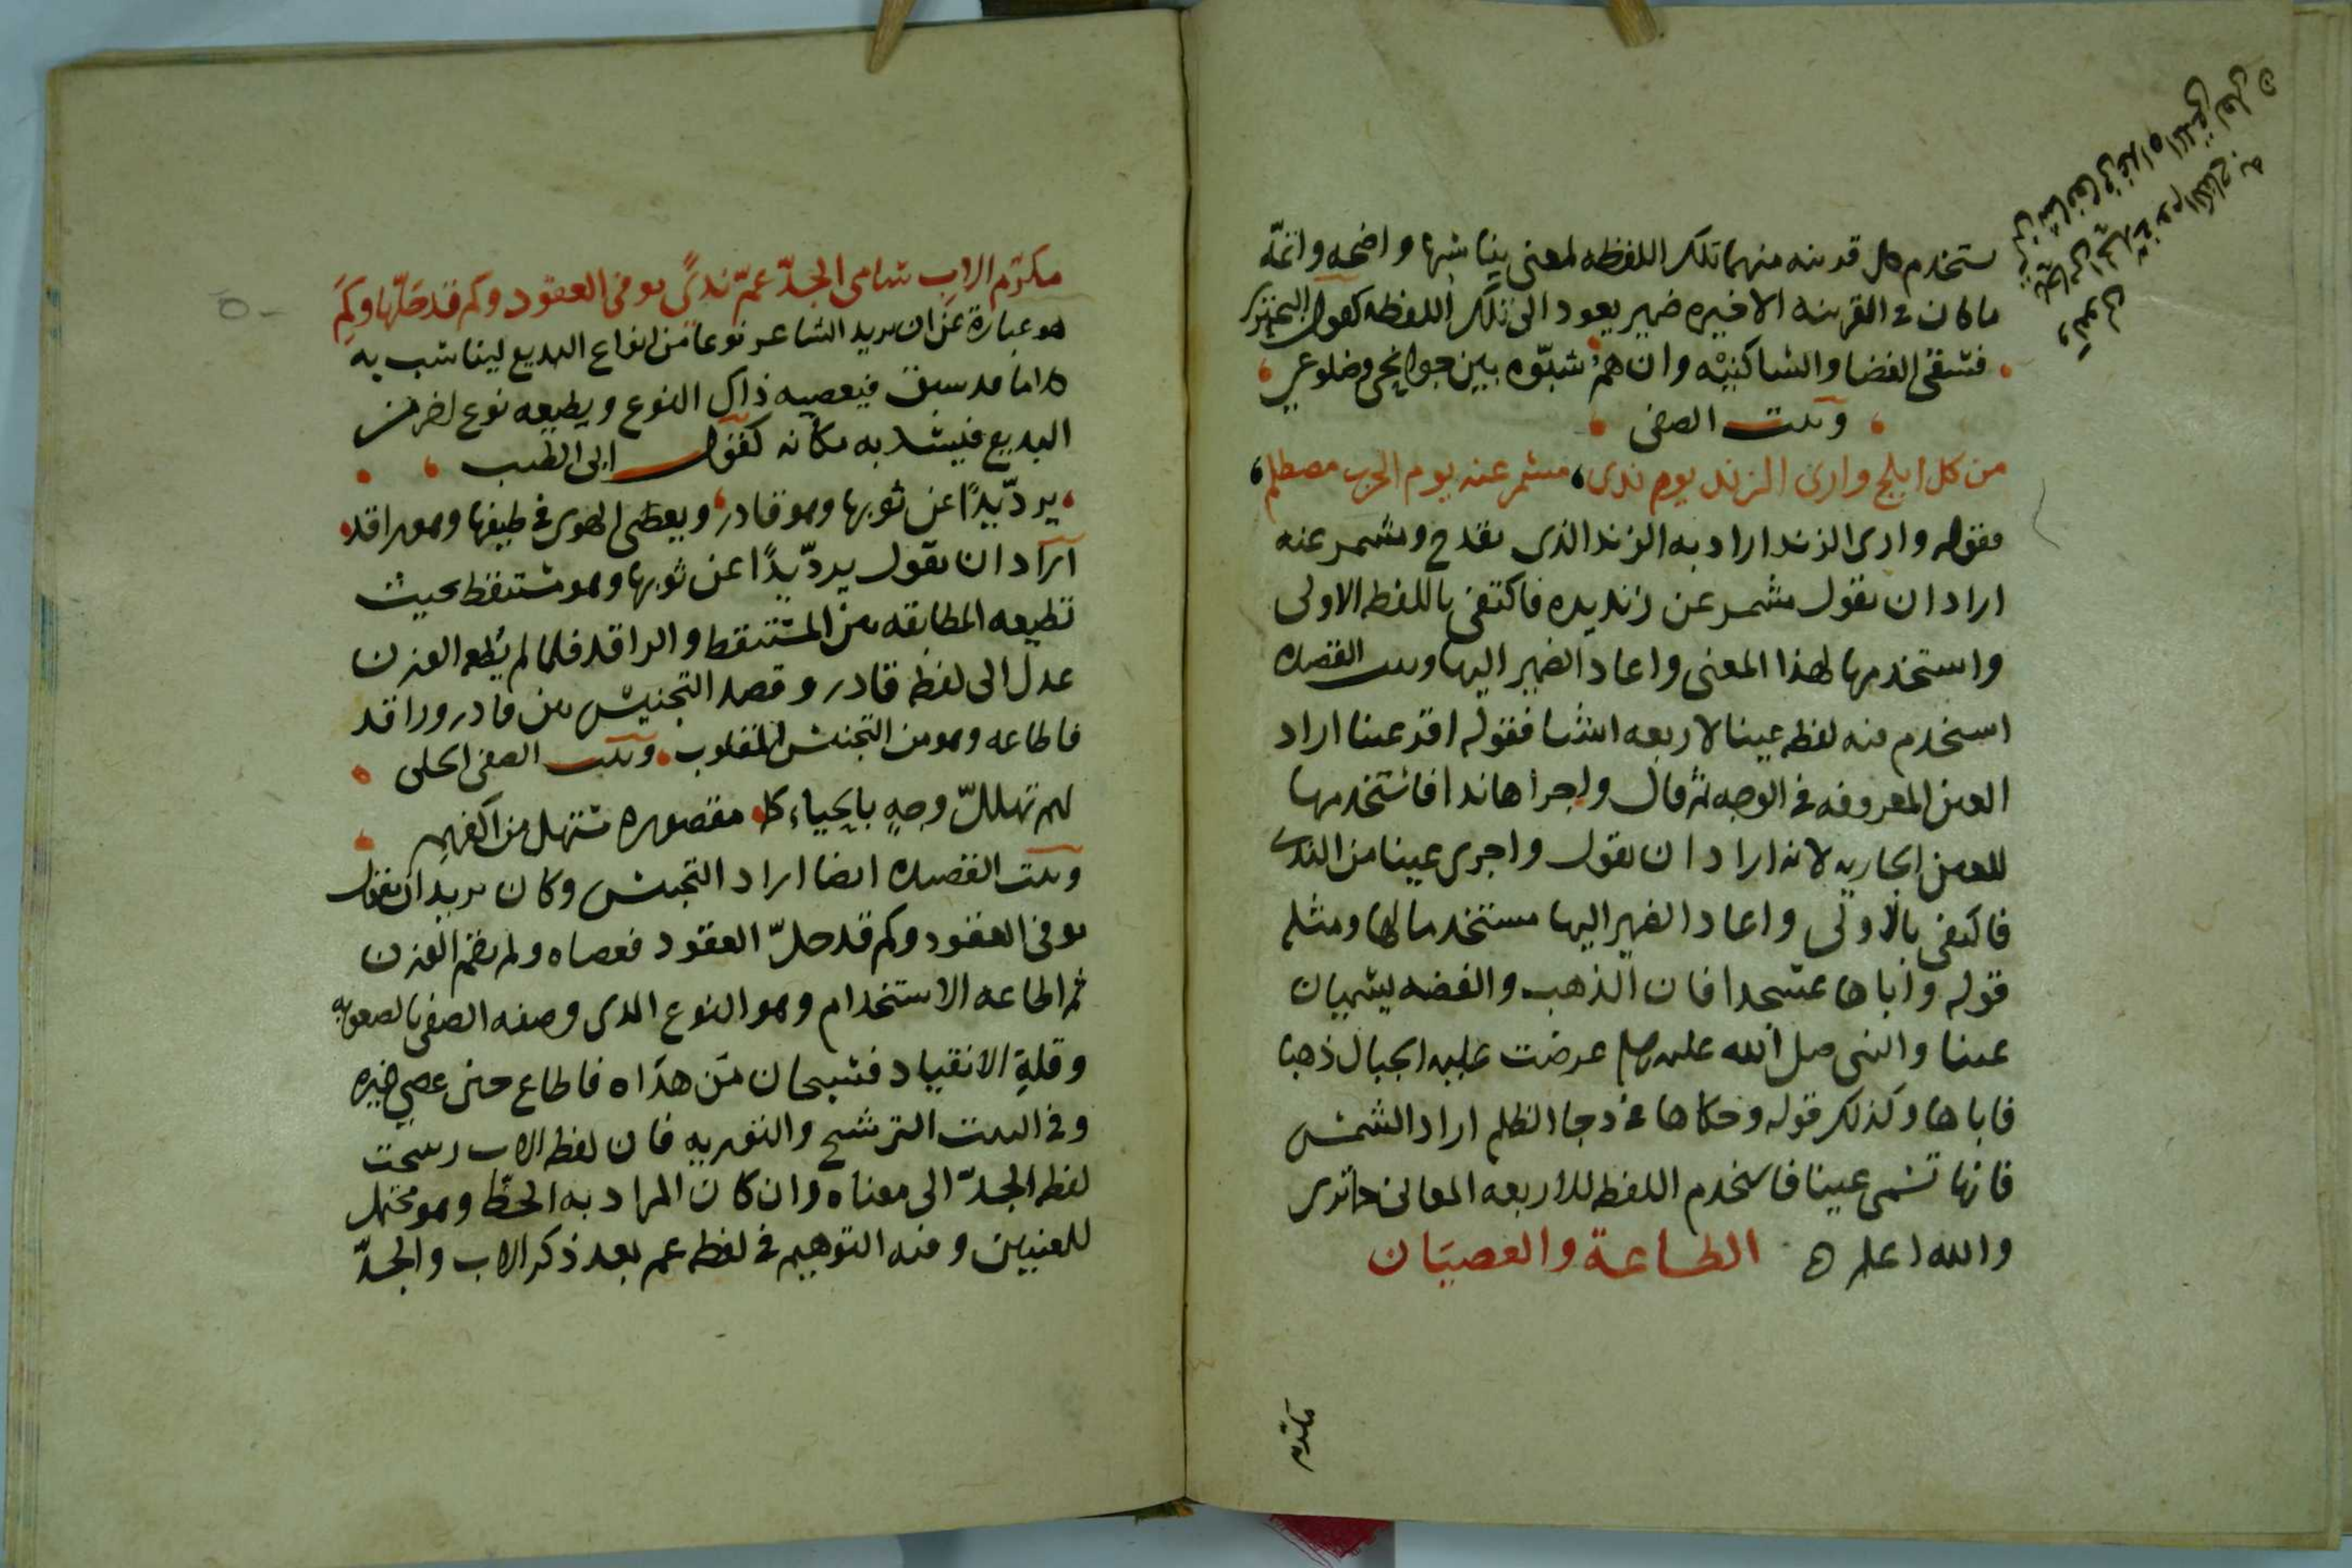 ستخدم كل قرينه منهما تلك اللفظه لمعنى يناسبها واضحه وانمه
ما كان فى القرينه الاخيره ضمير يعود الى تلك اللفظه كقول البحترى
فسقى الغضا والساكنيه وان هم شبّوه بين جوانحى وضلوعى
وبيت الصفى
من كل ابلج وارى الزند يوم ندى مشمر عنه يوم الحرب مصطلم
فقوله وارى الزند اراد به الزند الذى يقدح ومشمر عنه
اراد ان يقول مشمر عن زنديده فاكتفى باللفظه الاولى
واستخدمها لهذا المعنى واعاد الضمير اليها وبيت القصيده
استخدم فيه لفظه عينا لاربعه اشيا فقوله اقر عينا اراد
العين المعروفه فى الوجه ثم قال واجراها ندا فاستخدمها
للعين الجاريه لانه اراد ان يقول واجرى عينا من الندى
فاكتفى بالاولى واعاد الضمير اليها مستخدما لها ومثله
قوله واباها عسجدا فان الذهب والفضه يسميان
عينا والنبى صلى الله عليه وسلم عرضت عليه الجبال ذهبا
فاباها وكذلك قوله وحكاها فى دجا الظلم اراد الشمس
فانها تسمى عينا فاستخدم اللفظه للاربعه المعانى كما ترى
والله اعلم ه الطاعة والعصيان
مكرّم الاب سامى الجدّ عمّ ندىً يوفى العقود وكم قد حلّها وكم
هو عبارة عن ان يريد الشاعر نوعا من انواع البديع ليناسب به
كلاما قد سبق فيعصيه ذاك النوع ويطيعه نوع اخر من
البديع فينشد به مكانه كقول ابى الطيب
يردّ يدًا عن ثوبها وهو قادر ويعصى الهوى فى طيفها وهو راقد
اراد ان يقول يردّ يدًا عن ثوبها وهو مستيقظ بحيث
تطيعه المطابقه بين المستيقظ والراقد فلما لم يطعه الوزن
عدل الى لفظه قادر وقصد التجنيس بين قادر وراقد
فاطاعه وهو من التجنيس المقلوب وبيت الصفى الحلى
لهم تهلل وجهٍ بالحياء كما مقصوره مستهل من اكفهم
وبيت القصيده ايضا اراد التجنيس وكان يريد ان يقول
يوفى العقود وكم قد حلّ العقود فعصاه ولم يقم الوزن
ثم اطاعه الاستخدام وهو النوع الذى وصفه الصفى بالصعوبه
وقلةِ الانقياد فسبحان من هداه فاطاع حين عصى غيره
وفى البيت الترشيح والتوريه فان لفظه الاب رشحت
لفظه الجدّ الى معناه وان كان المراد به الحظ وهو محتمل
للمعنيين وفيه التوهيم فى لفظه عم بعد ذكر الاب والجدّ